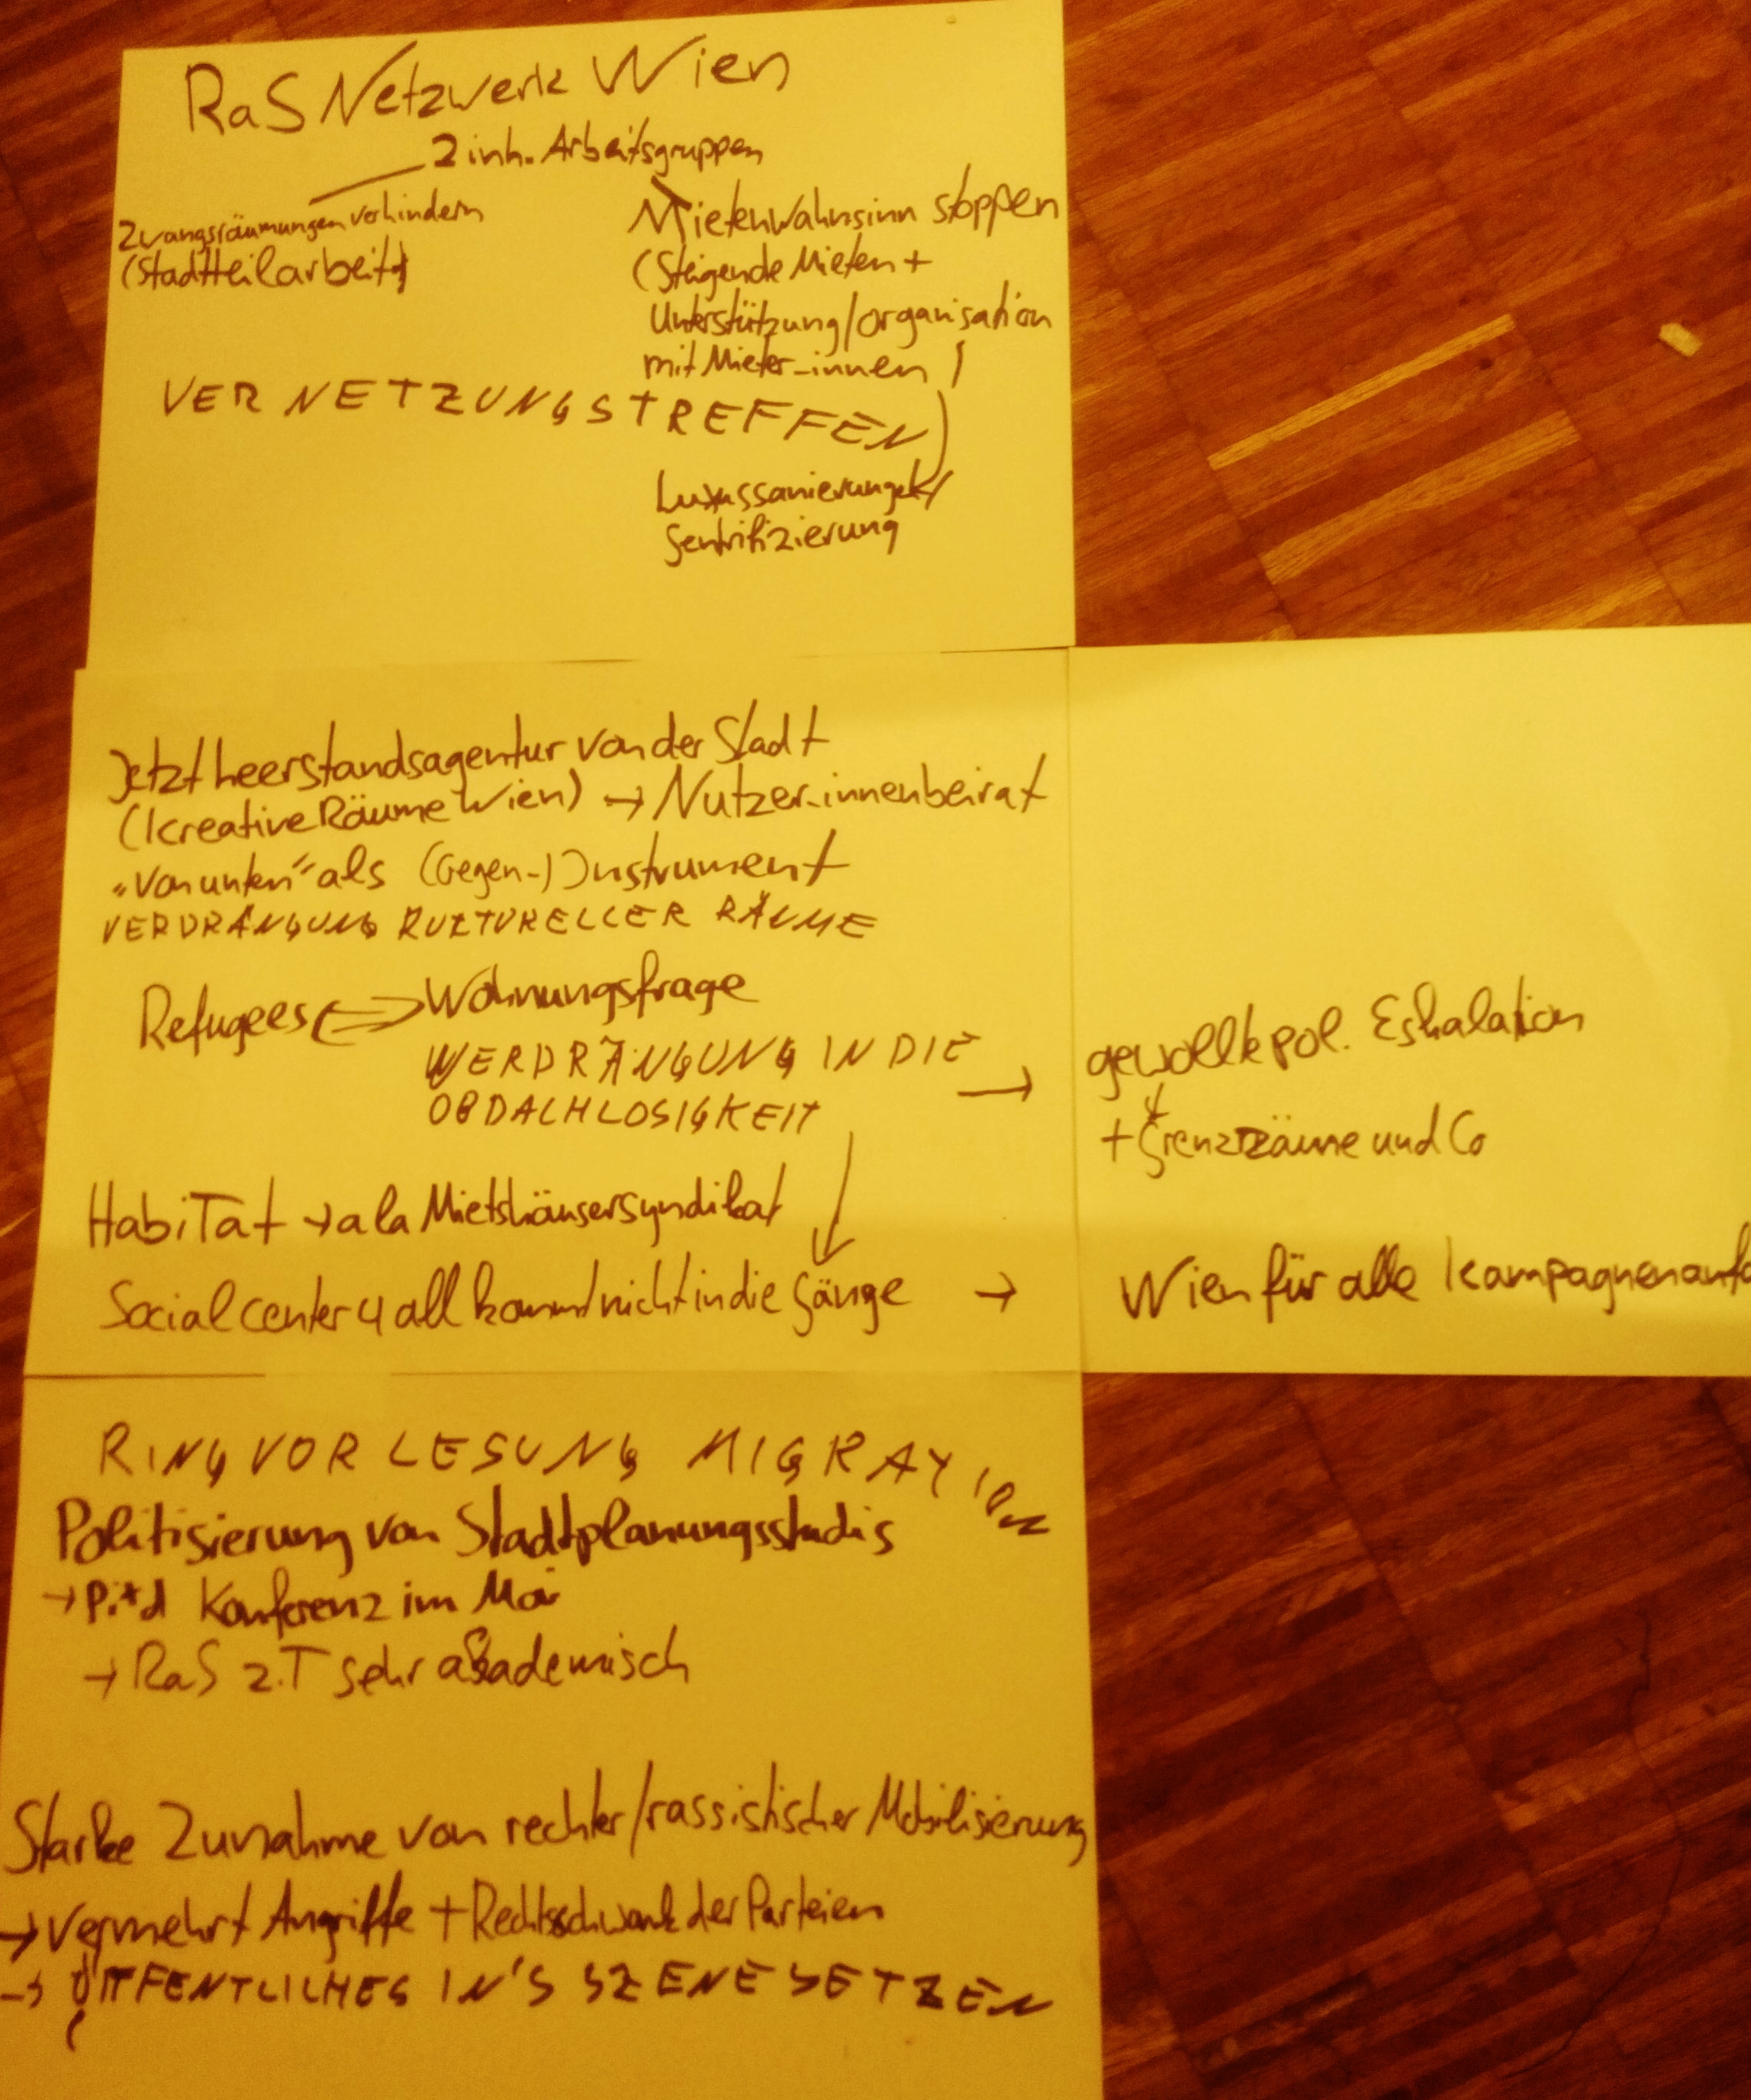 RaS Netzwerk Wien
2 inh. Arbeitsgruppen
Zwangsräumungen verhindern
(Stadtteilarbeit)
Mietenwahnsinn stoppen
(Steigende Mieten +
Unterstützung/organisation
mit Mieter_innen)
VERNETZUNGSTREFFEN
Luxussanierungen/
Gentrifizierung
Jetzt Leerstandsagentur von der Stadt
(Kreative Räume Wien) → Nutzer_innenbeirat
"Von unten" als (Gegen-)Instrument
VERDRÄNGUNG KULTURELLER RÄUME
Refugees ⇔ Wohnungsfrage
VERDRÄNGUNG IN DIE →
OBDACHLOSIGKEIT
gewollte pol. Eskalation
+ Grenzzäune und Co
HabiTat → a la Mietshäusersyndikat
Social center 4 all kommt nicht in die Gänge →
Wien für alle Kampagnen
RINGVORLESUNG MIGRATION
Politisierung von Stadtplanungsstudis
→ Konferenz im Mai
→ RaS z.T sehr akademisch
Starke Zunahme von rechter/rassistischer Mobilisierung
→ Vermehrt Angriffe + Rechtsschwenk der Parteien
→ ÖFFENTLICHES IN'S SZENE SETZEN